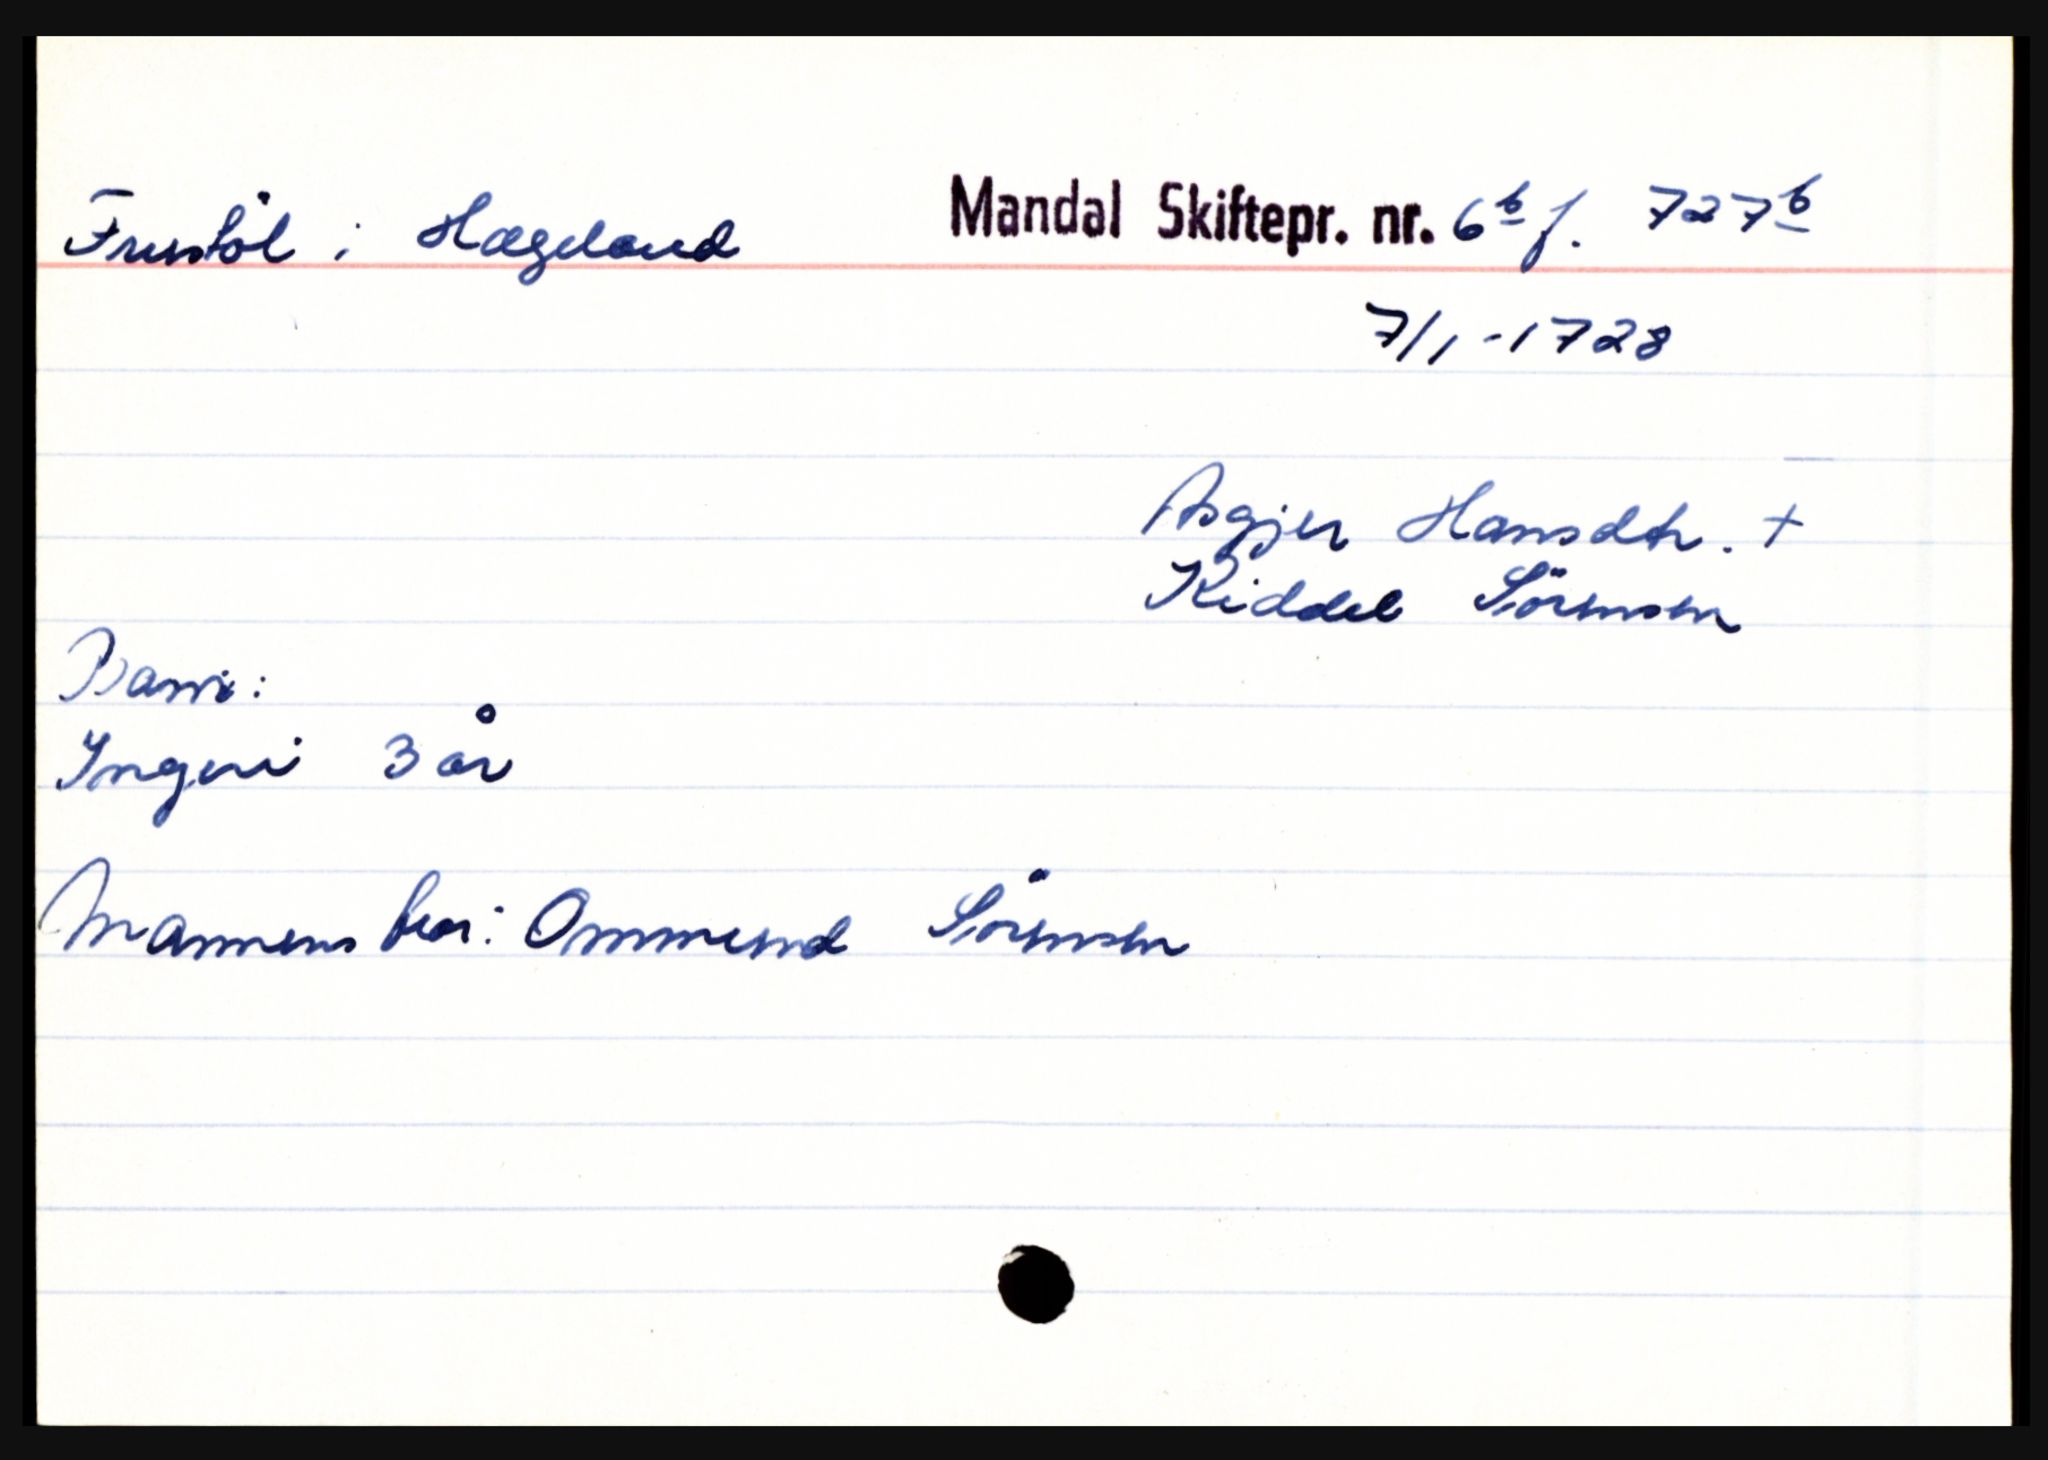 Frustöl i Hægeland Mandal Skiftepr. nr. 6b f. 727b
7/1-1728
Asgjer Hansdtr. +
Kiddel Sörensen
Barn:
Ingeri 3 år
Mannens bror: Ommund Sörensen